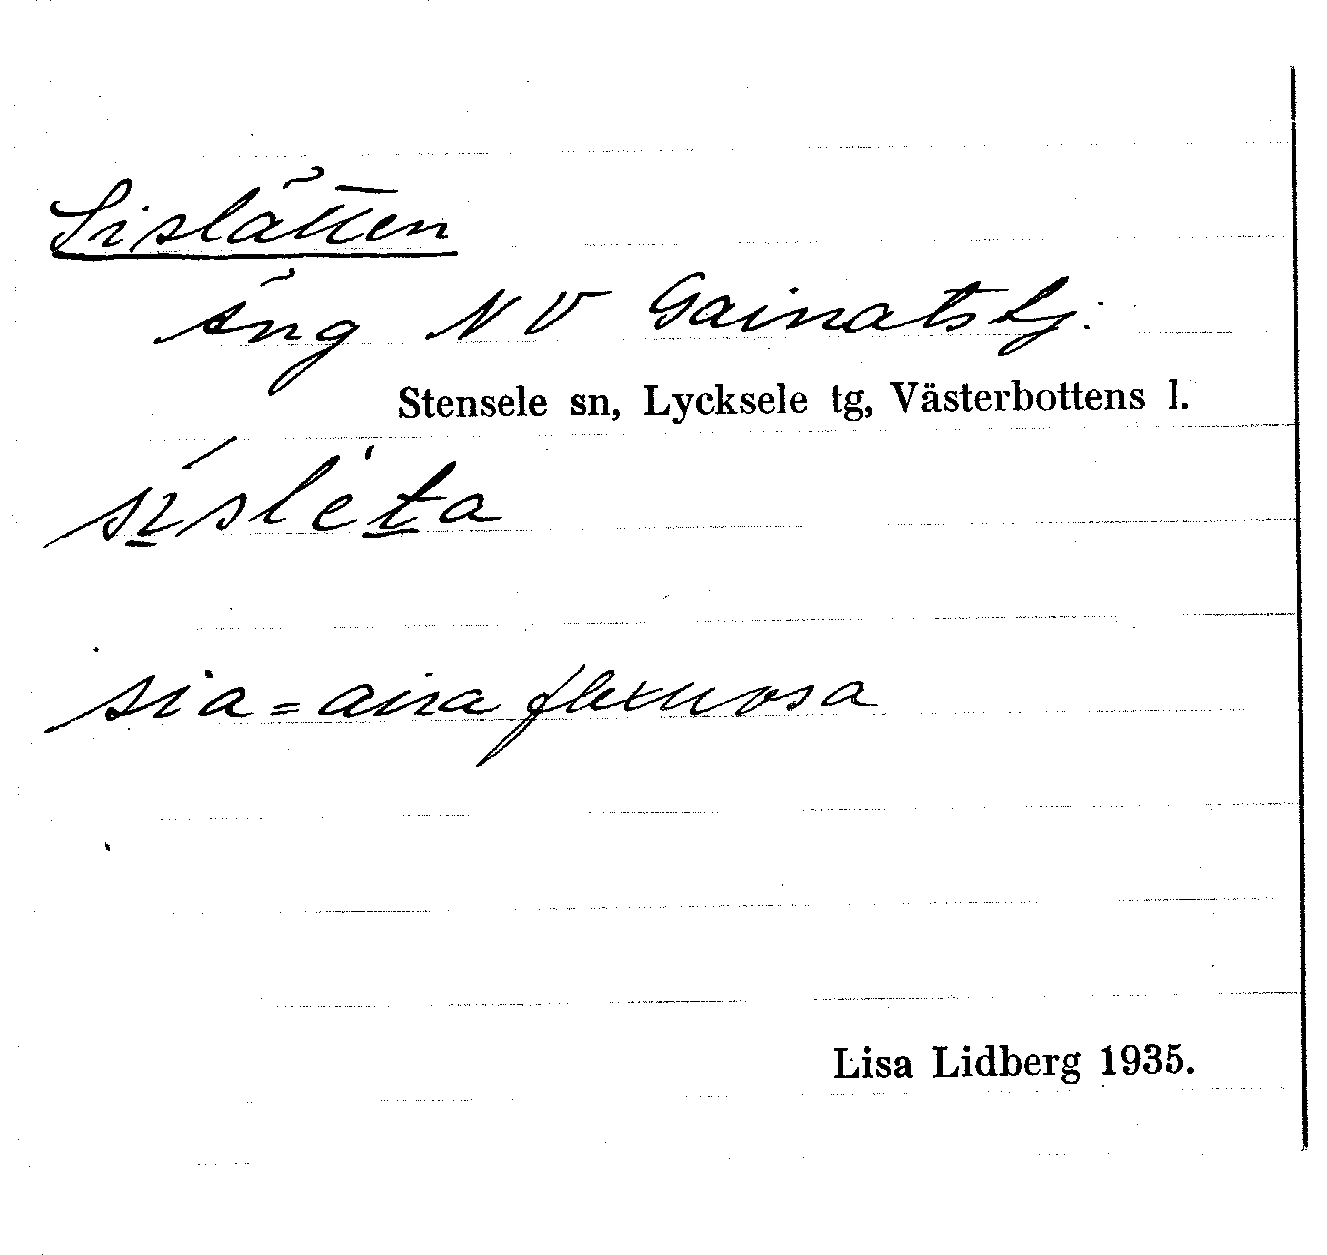 Sislätten
äng NV Gainatsbj.
Stensele sn, Lycksele tg, Västerbottens l.
sia = aira flexuosa
Lisa Lidberg 1935.